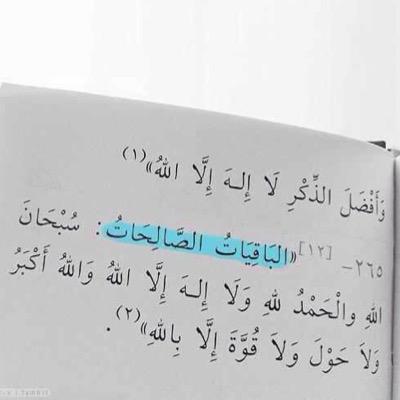 وَأَفْضَلَ الذِّكْرِ لَا إِلـهَ إِلَّا اللهُ»(١)
٢٦٥- [١٢] «البَاقِيَاتُ الصَّالِحَاتُ: سُبْحَانَ
اللهِ والْحَمْدُ للهِ وَلَا إِلـهَ إِلَّا اللهُ وَاللهُ أَكْبَرُ
وَلَا حَوْلَ وَلَا قُوَّةَ إِلَّا بِاللهِ»(٢).